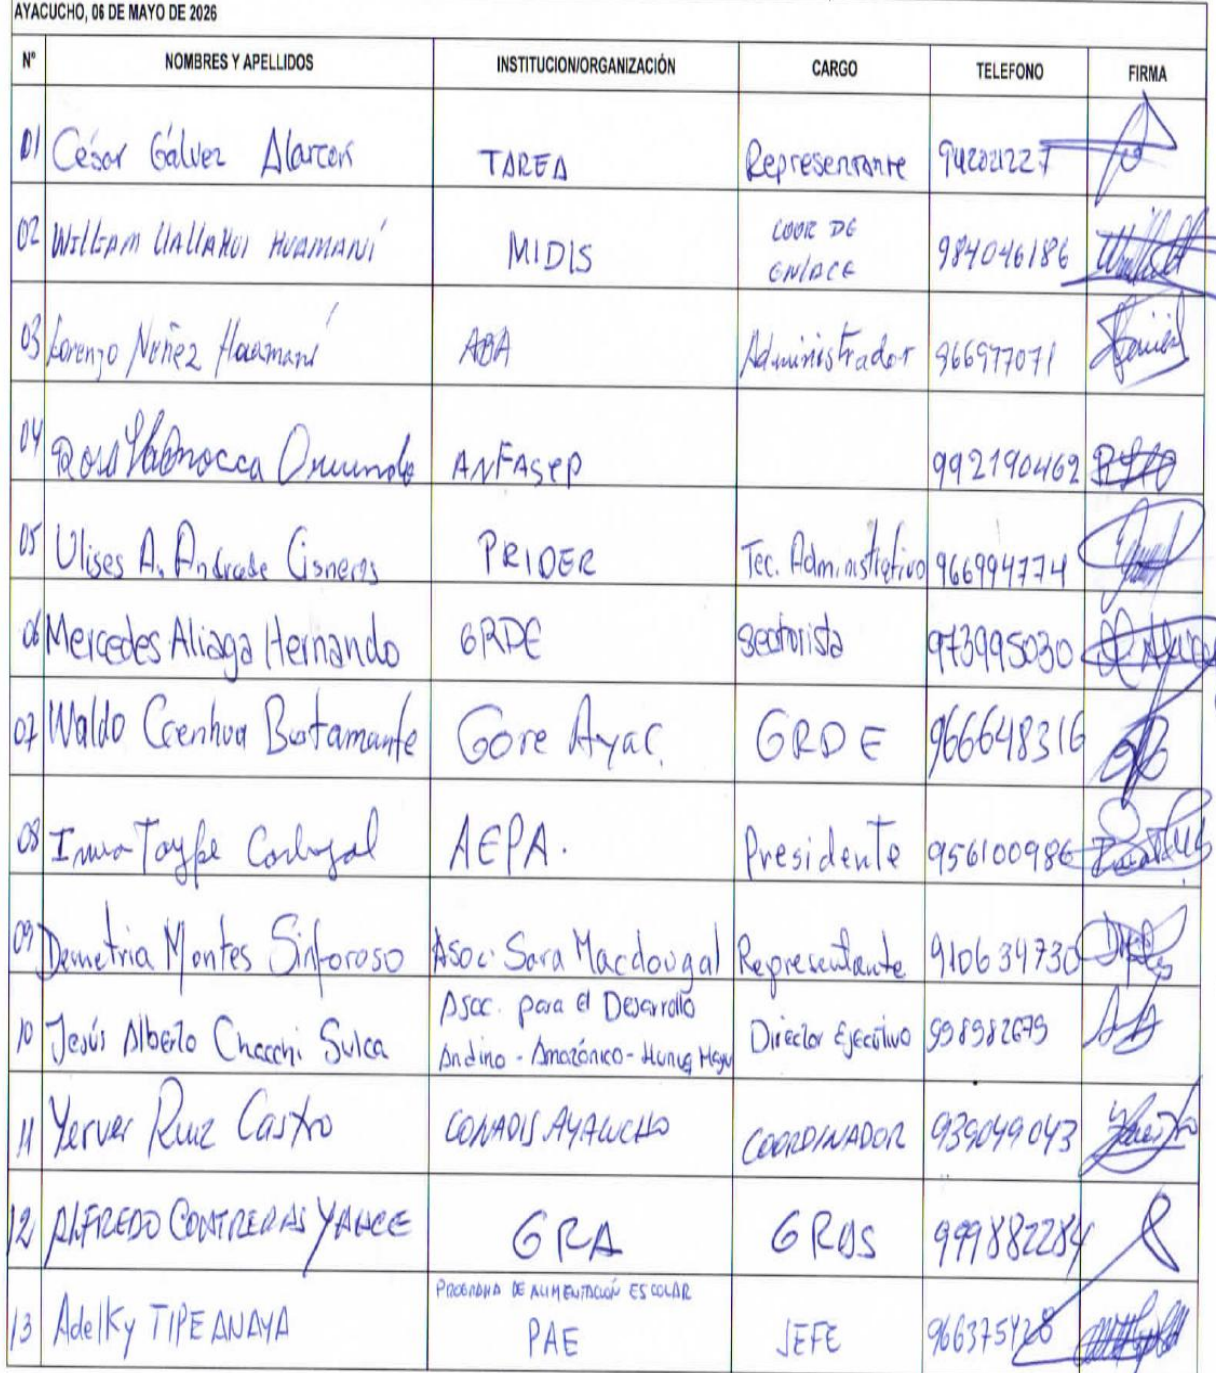 AYACUCHO, 06 DE MAYO DE 2026
Nº NOMBRES Y APELLIDOS INSTITUCION/ORGANIZACIÓN CARGO TELEFONO FIRMA
01 César Gálvez Alarcon TAREA Representante 942021227
02 William LLALLAHUI HUAMANÍ MIDIS COOR DE ENLACE 984046186
03 Lorenzo Nuñez Huamaní ABA Administrador 966977071
04 Rosa Oncoma ANFASEP 992190462
05 Ulises A. Andrade Cisneros PRIDER Tec. Administrativo 966994774
06 Mercedes Aliaga Hernando GRDE Sectorista 973995030
07 Waldo Ccenhua Bustamante Gore Ayac. GRDE 966648316
08 Taype Carbajal AEPA. Presidente 956100986
09 Demetria Montes Sinforoso Asoc. Sara Macdougal Representante 910634730
10 Jesús Alberto Chacchi Sulca Asoc. para el Desarrollo
Andino - Amazónico - Director Ejecutivo 998982679
11 Yerver Ruiz Castro CONADIS AYACUCHO COORDINADOR 939049043
12 ALFREDO CONTRERAS YANCE GRA GRDS 999882284
13 Adelky TIPE ANAYA PROGRAMA DE ALIMENTACIÓN ESCOLAR
PAE JEFE 966375428